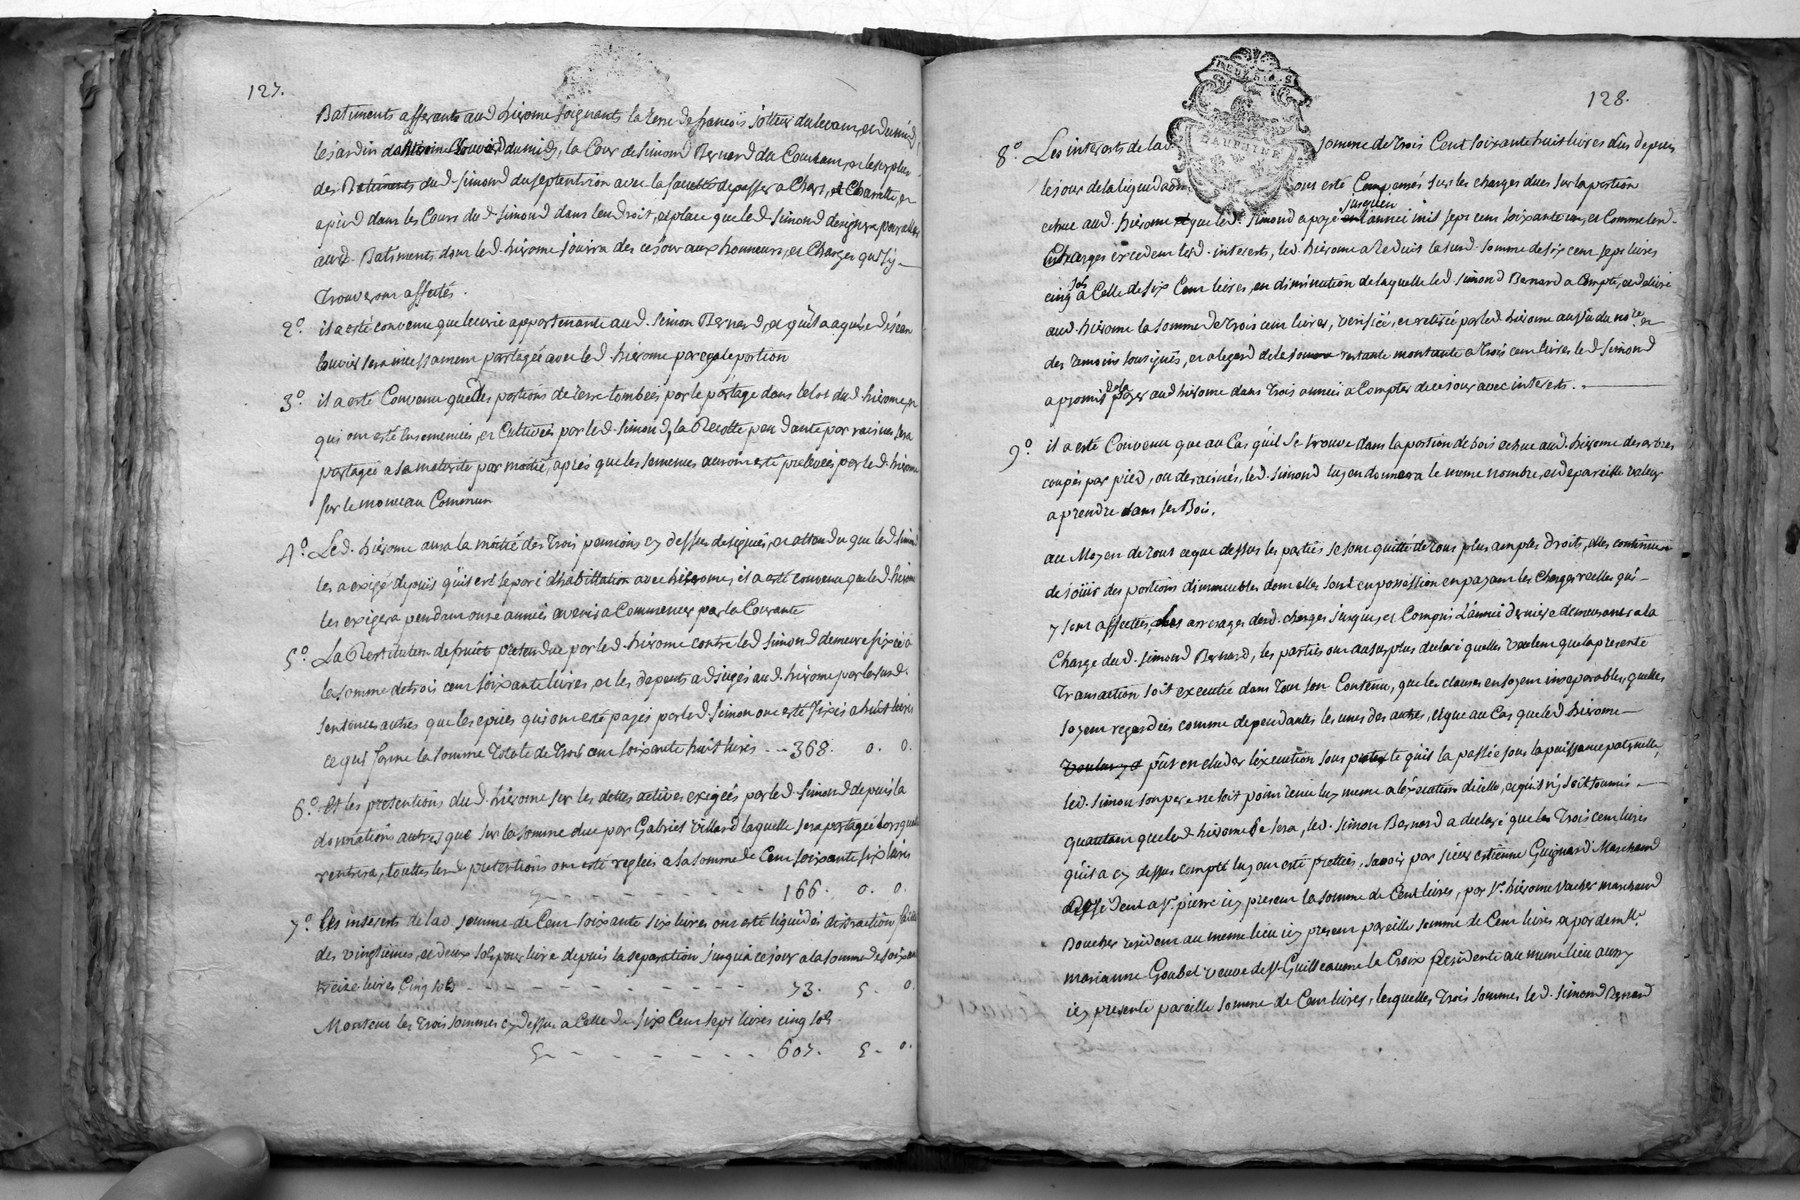 127.
Batiments afferants aud hierome joignants la terre de françois jolteur du levant, et du midy
le jardin du midy, la Cour de simond Bernard du Couchant, et le surplus
des Batiments dud. simond du septentrion avec la faculté de passer a Char, et Charette, et
a pied dans les Cours dud simond dans l'endroit, et place que led. simond designera pour aller
aud. Batiments, dont led. hierome jouira des ce jour aux honneurs, et Charges qui s'y
trouveront affectés.
2º. il a esté convenu que appartenante aud. simon Bernard, et qu'il a aquise de jean
louvier sera incessament partagée avec led. hierome par egale portion
3º. il a esté Convenu que les portions de terre tombées par le partage dans le lot dud hierome, et
qui ont esté Ensemencées, et Cultivées par led. simond, la Recolte pendante par racines sera
partagée a sa maturité par moitié, aprés que les semences auront esté prelevées par led. hierome
sur le monceau Commun
4º. Led. hierome aura la moitié des trois pensions cy dessus designées, et attendu que led simond
les a exigé depuis qu'il est separé d'habittation avec hierome, il a esté convenu que led hierome
les exigera pendant onze années avenir a Commencer par la Courante
5º. La Restitution de fruict pretendue par led. hierome contre led simond demeure fixée a
la somme de trois cent soixante livres, et les depents adjugés aud. hierome par lasusd.
sentence autres que les epices qui ont esté payés par led. simon ont esté fixés a huit livres
ce qui forme la somme totale de trois cent soixante huit livres - - 368. 0. 0.
6º. Et les pretentions dud. hierome sur les dettes actives exigées par led. simond depuis la
donnation autres que sur la somme due par Gabriel Villard laquelle sera partagée Lorsquelle
rentrera, touttes lesd. pretentions ont esté reglées a la somme de Cent soixante six livres
- - - - - - - 166. 0. 0.
7º. Les interests de lad. somme de Cent soixante six livres ont esté liquidés distraction faite
des vingtiemes, et deux sols pour livre depuis la separation jusqu'a ce jour a la somme de soixante
treize livres Cinq sols - - - - - - - 73. 5. 0.
Montent les trois sommes cy dessus a Celle de six Cent sept livres cinq sols
- - - - - - 607. 5. 0.
128.
DAUPHINÉ
8º. Les interests de lad somme de trois Cent soixante huit livres dus depuis
le jour de la liquidation ont esté Compensés sur les charges dues sur la portion
echue aud. hierome que led. simond a payé jusquen l'année mil sept cent soixante un, et Comme lesd.
Charges excedent lesd. interests, led. hierome a Reduit lasusd. somme de six cent sept livres
cinq sols a Celle de six Cent livres, en diminution de laquelle led. simond Bernard a Compté, et delivré
aud. hierome la somme de trois cent livres, verifiée, et retirée par led hierome au vu du nore. et
des temoins soussignés, et a legard de la somme restante montante a trois cent livres led. simond
a promis de la payer aud hierome dans trois années a Compter de ce jour avec interests.
9º. il a esté Convenu que au Cas qu'il se trouve dans la portion de bois echue aud. hierome des arbres
coupés par pied, ou deracinés, led. simond luy en donnera le meme nombre, et de pareille valeur
a prendre dans ses Bois.
au Moyen de tout ce que dessus les parties se sont quitté de tous plus amples droits, elles continueront
de joüir des portions d'immeubles dont elles sont en possession en payant les Charges reelles qui
y sont affectées, les arrerages desd. charges jusques, et Compris L'année derniere demeurants a la
Charge dud. simond Bernard, les parties ont au surplus declaré quelles veulent que la presente
Transaction soit executée dans tout son Contenu, que les clauses en soyent inseparables, quelles
soyent regardées comme dependantes les unes des autres, et que au Cas que led hierome
put en eluder l'execution sous pretexte qu'il la passée sous la puissance paternelle,
led. simon son pere ne soit point tenu luy meme a l'execution d'icelle, et qu'il n'y soit soumis
quautant que led hierome le sera, led. simon Bernard a declaré que les Trois cent livres
qu'il a cy dessus compté luy ont esté prettées, savoir par sieur estienne Guignard Marchand
Residant a st. pierre icy present la somme de Cent livres, par sr. hierome Vacher marchand
Boucher resident au meme lieu icy present pareille somme de Cent livres et par demlle.
marianne Goubet veuve de sr. Guilleaume la Croix Residente au meme lieu aussy
icy presente pareille somme de Cent livres, lesquelles trois sommes led. simond Bernard